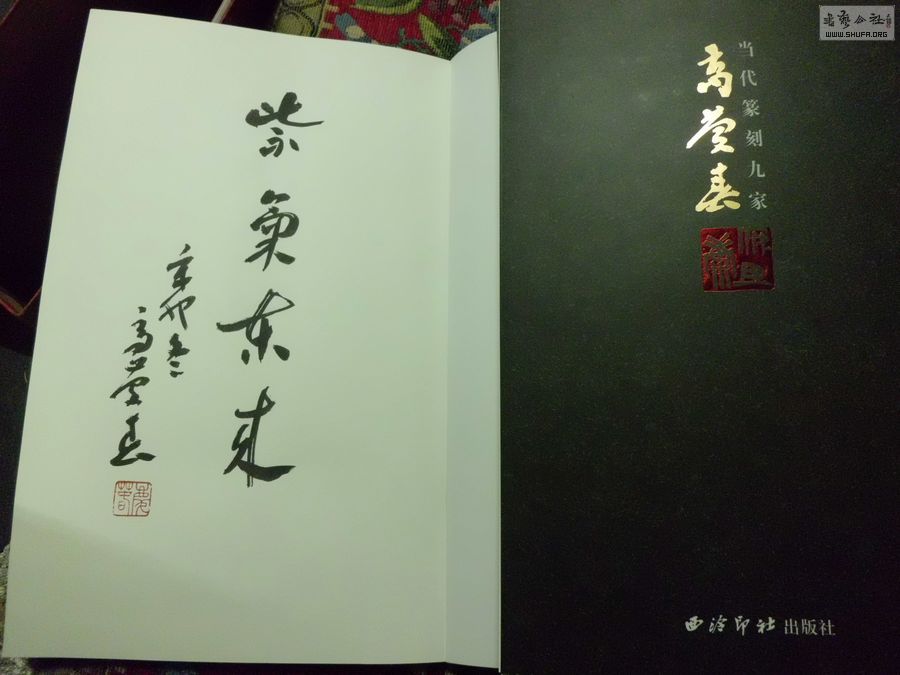 紫氣东来
辛卯冬
高慶春
当代篆刻九家
高慶春
西泠印社出版社
書藝公社
WWW.SHUFA.ORG